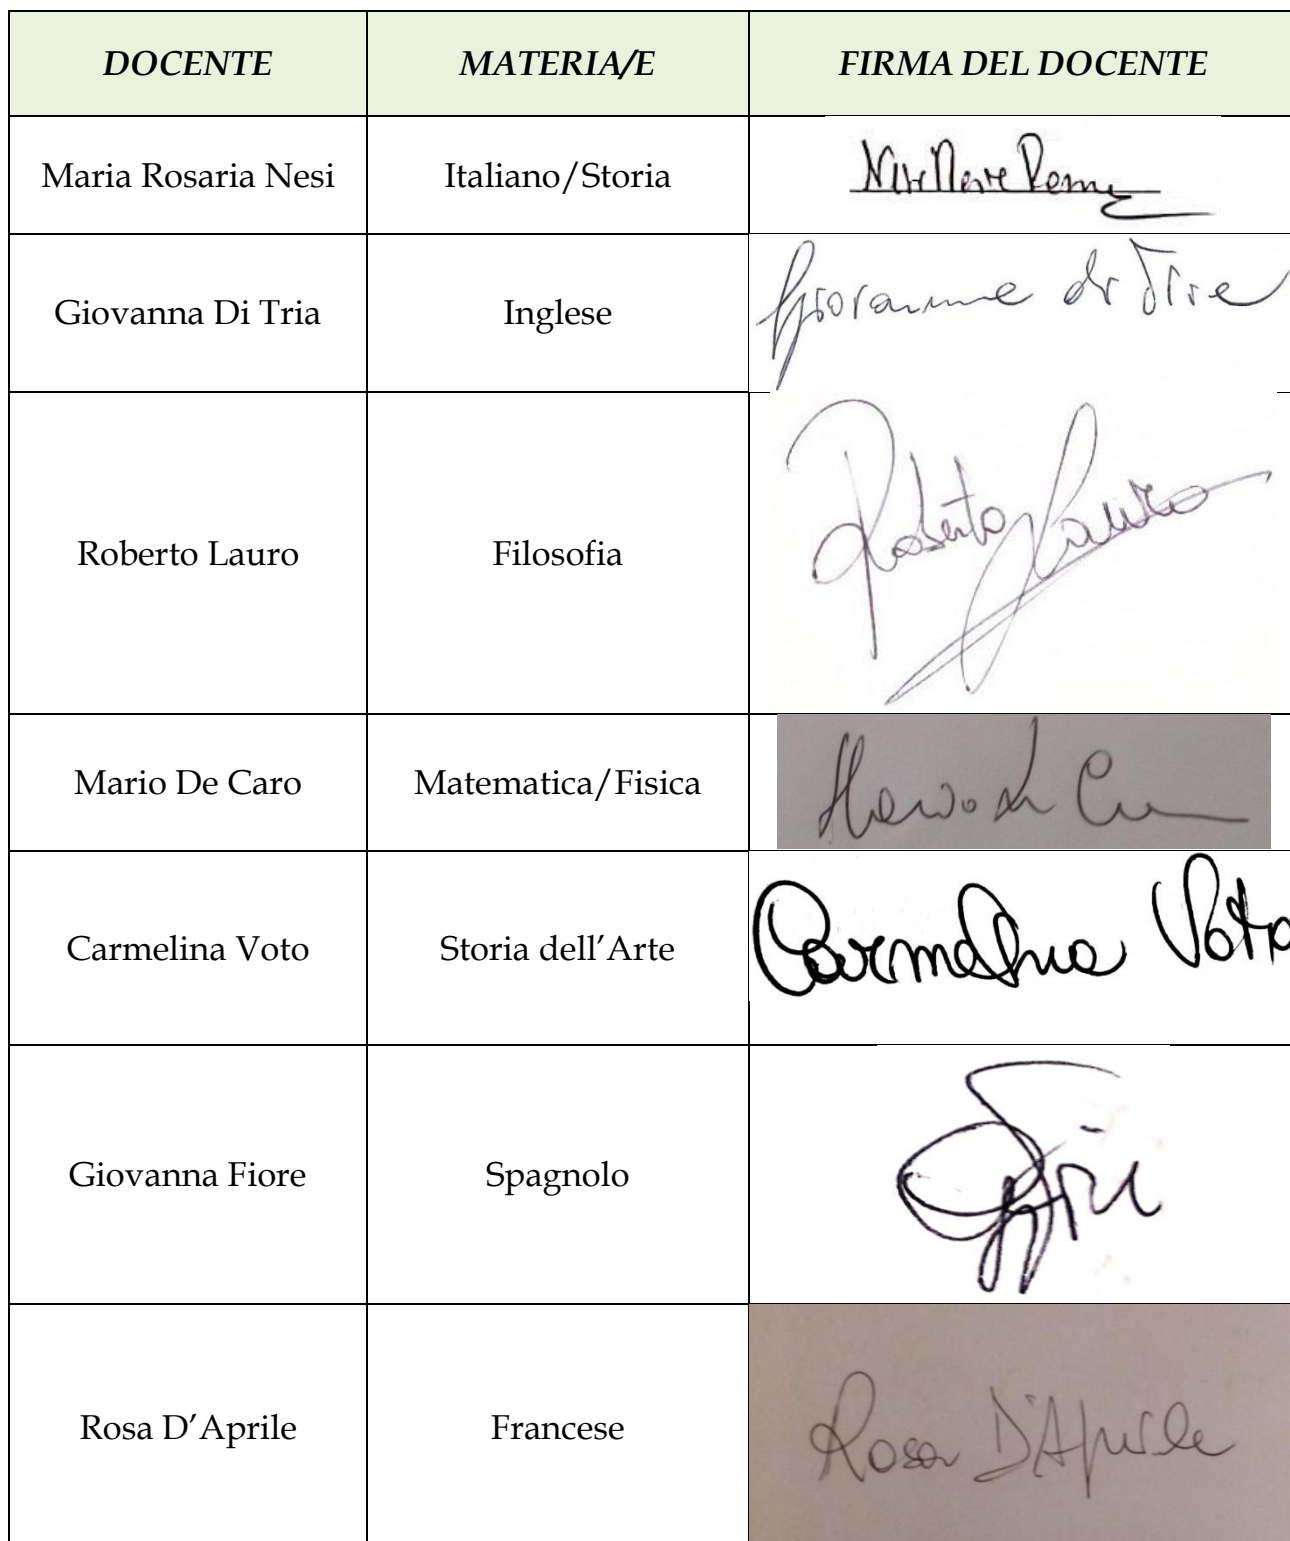 DOCENTE MATERIA/E FIRMA DEL DOCENTE
Maria Rosaria Nesi Italiano/Storia
Giovanna Di Tria Inglese Giovanna di Tria
Roberto Lauro Filosofia Roberto Lauro
Mario De Caro Matematica/Fisica Mario De Caro
Carmelina Voto Storia dell'Arte Carmelina Voto
Giovanna Fiore Spagnolo
Rosa D'Aprile Francese Rosa D'Aprile